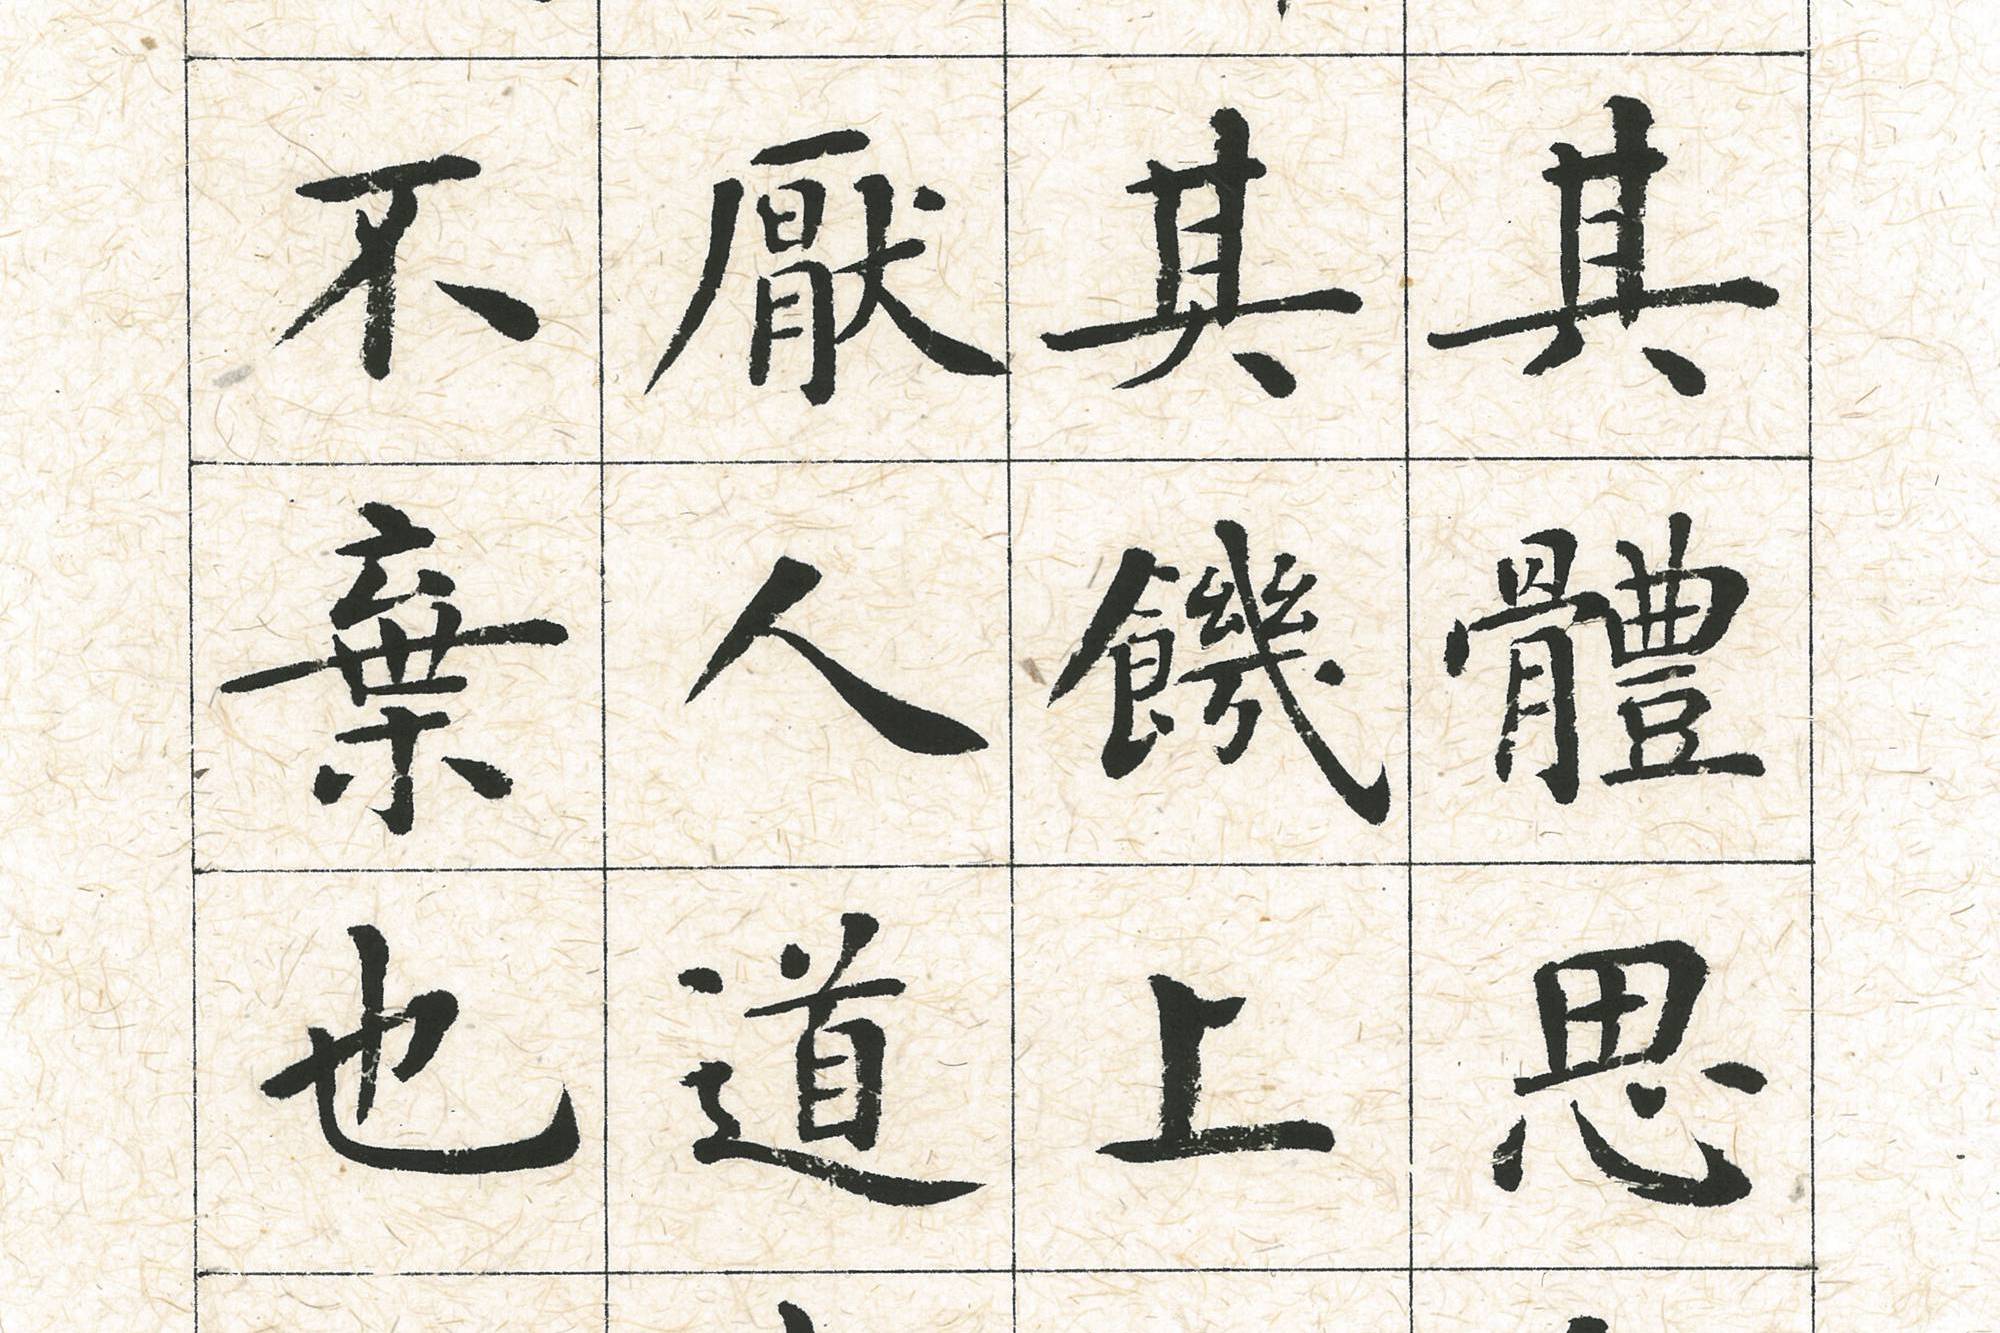 其體思
其饑上
厭人道
不棄也